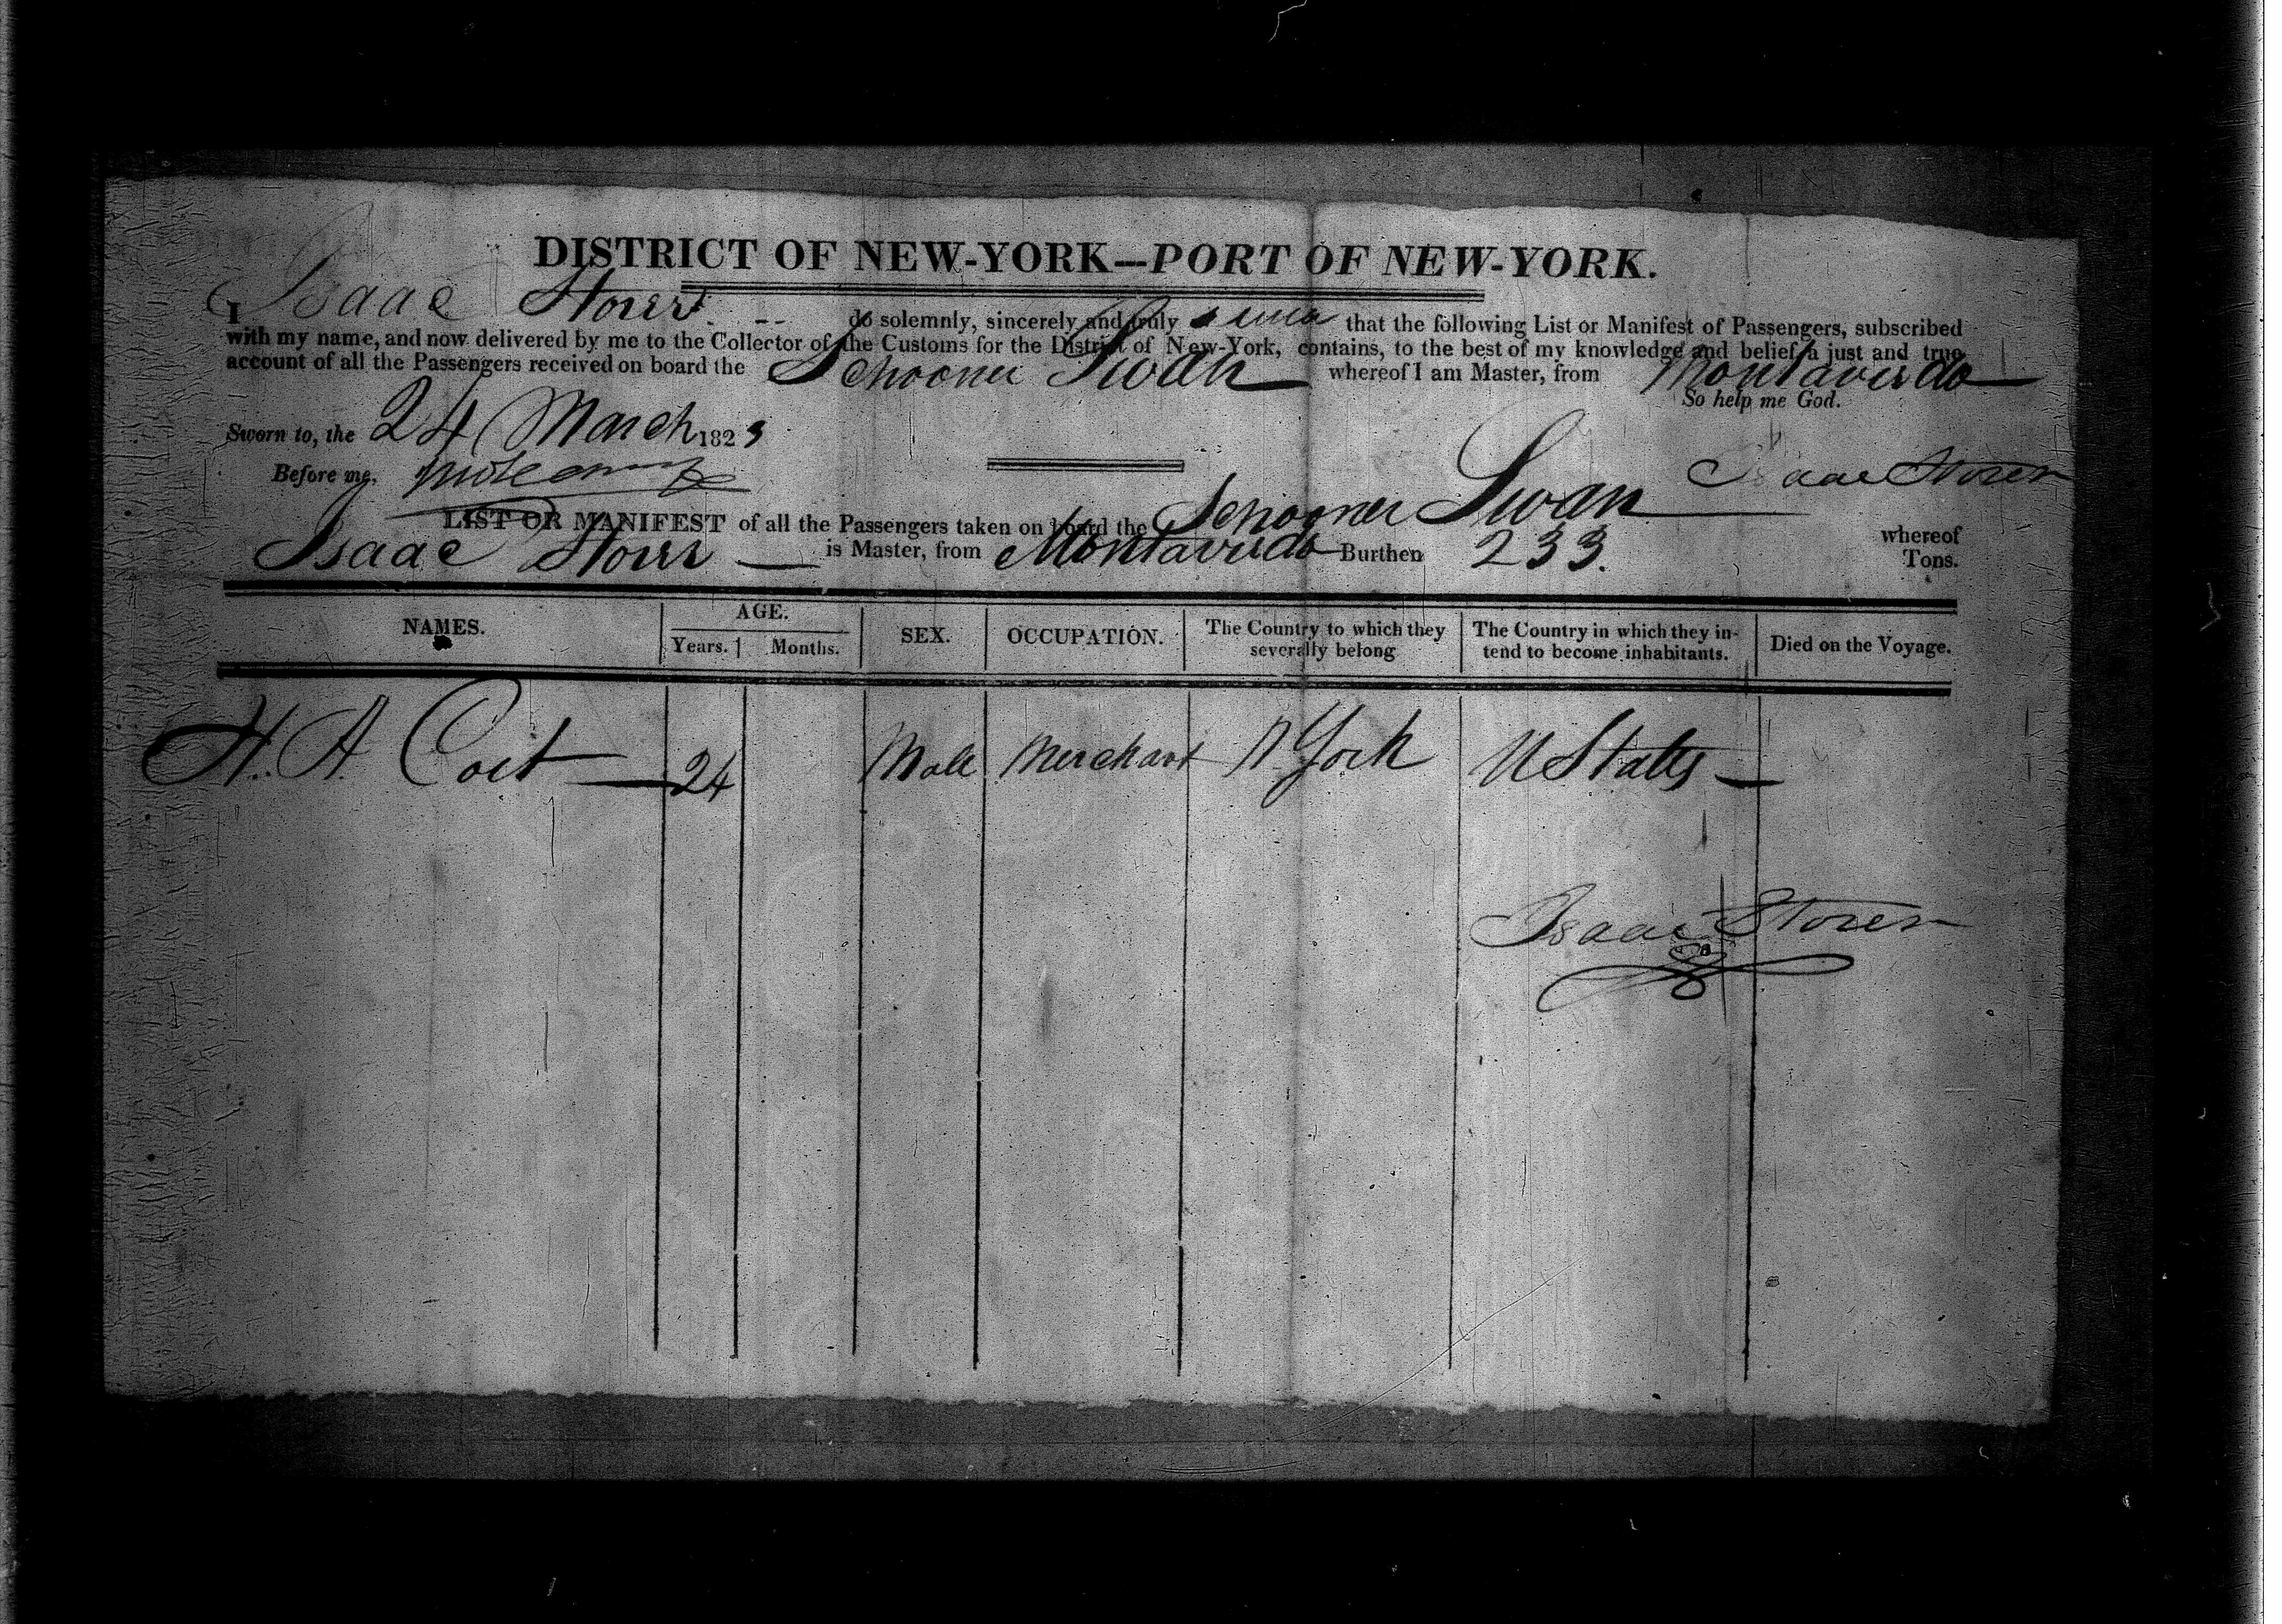 DISTRICT OF NEW-YORK—PORT OF NEW-YORK.
I Isaac Storer do solemnly, sincerely and truly swear that the following List or Manifest of Passengers, subscribed
with my name, and now delivered by me to the Collector of the Customs for the District of New-York, contains, to the best of my knowledge and belief, a just and true
account of all the Passengers received on board the Schooner Swan whereof I am Master, from Montaverdo
So help me God.
Sworn to, the 24 March 1823
Isaac Storer
Before me,
LIST OR MANIFEST of all the Passengers taken on board the Schooner Swan whereof
Isaac Storer is Master, from Montaverdo Burthen 233. Tons.
NAMES. AGE. Years. Months. SEX. OCCUPATION. The Country to which they severally belong The Country in which they intend to become inhabitants. Died on the Voyage.
H. A. Coit 24 Male Merchant N York U States
Isaac Storer